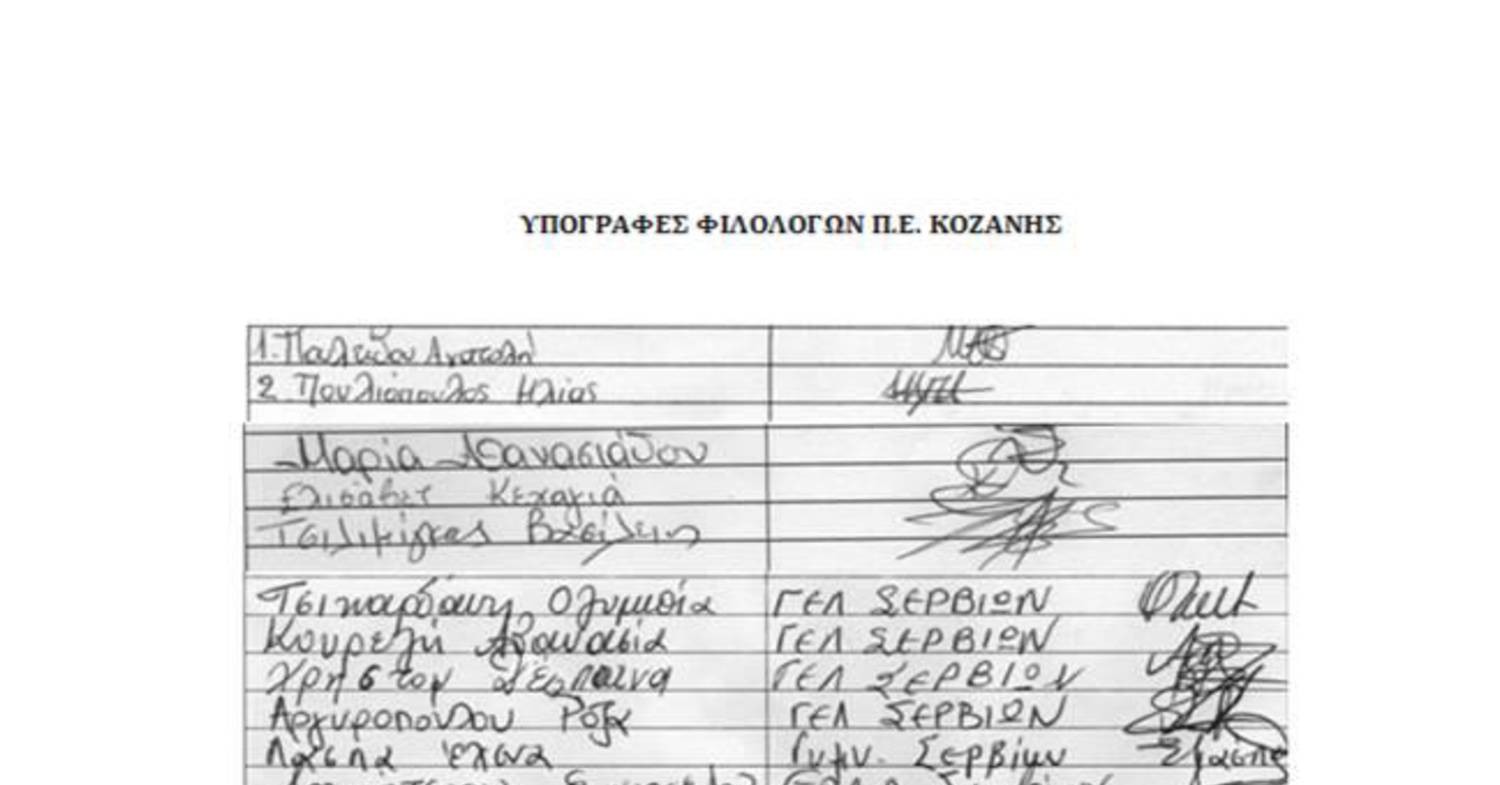 ΥΠΟΓΡΑΦΕΣ ΦΙΛΟΛΟΓΩΝ Π.Ε. ΚΟΖΑΝΗΣ
1. Παλείδου Ανατολή
2 Πουλιόπουλος Ηλίας
Μαρία Αθανασιάδου
Ελισάβετ Κεχαγιά
Τσιλιμίγκας Βασίλειος
Ολυμπία ΓΕΛ ΣΕΡΒΙΩΝ
Αθανασία ΓΕΛ ΣΕΡΒΙΩΝ
Χρήστου Δέσποινα ΓΕΛ ΣΕΡΒΙΩΝ
Αργυροπούλου Ρόζα ΓΕΛ ΣΕΡΒΙΩΝ
Λάσπα Έλενα Γυμν. Σερβίων